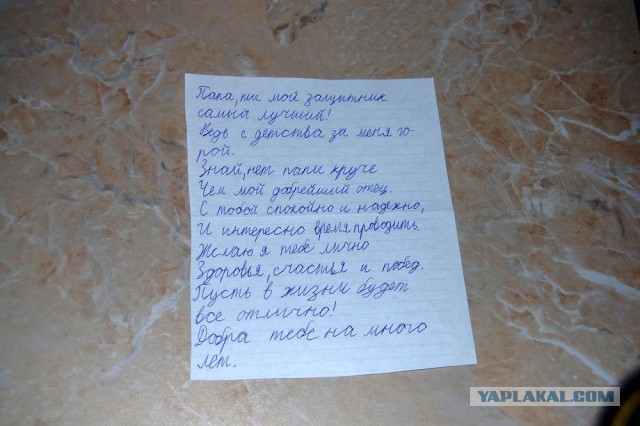 Папа, ты мой защитник
самый лучший!
Ведь с детства за меня го-
рой.
Знай, нет папы круче
Чем мой добрейший отец.
С тобой спокойно и надежно,
И интересно время проводить.
Желаю я тебе лично
Здоровья, счастья и побед.
Пусть в жизни будет
все отлично!
Добра тебе на много
лет.
YAPLAKAL.COM